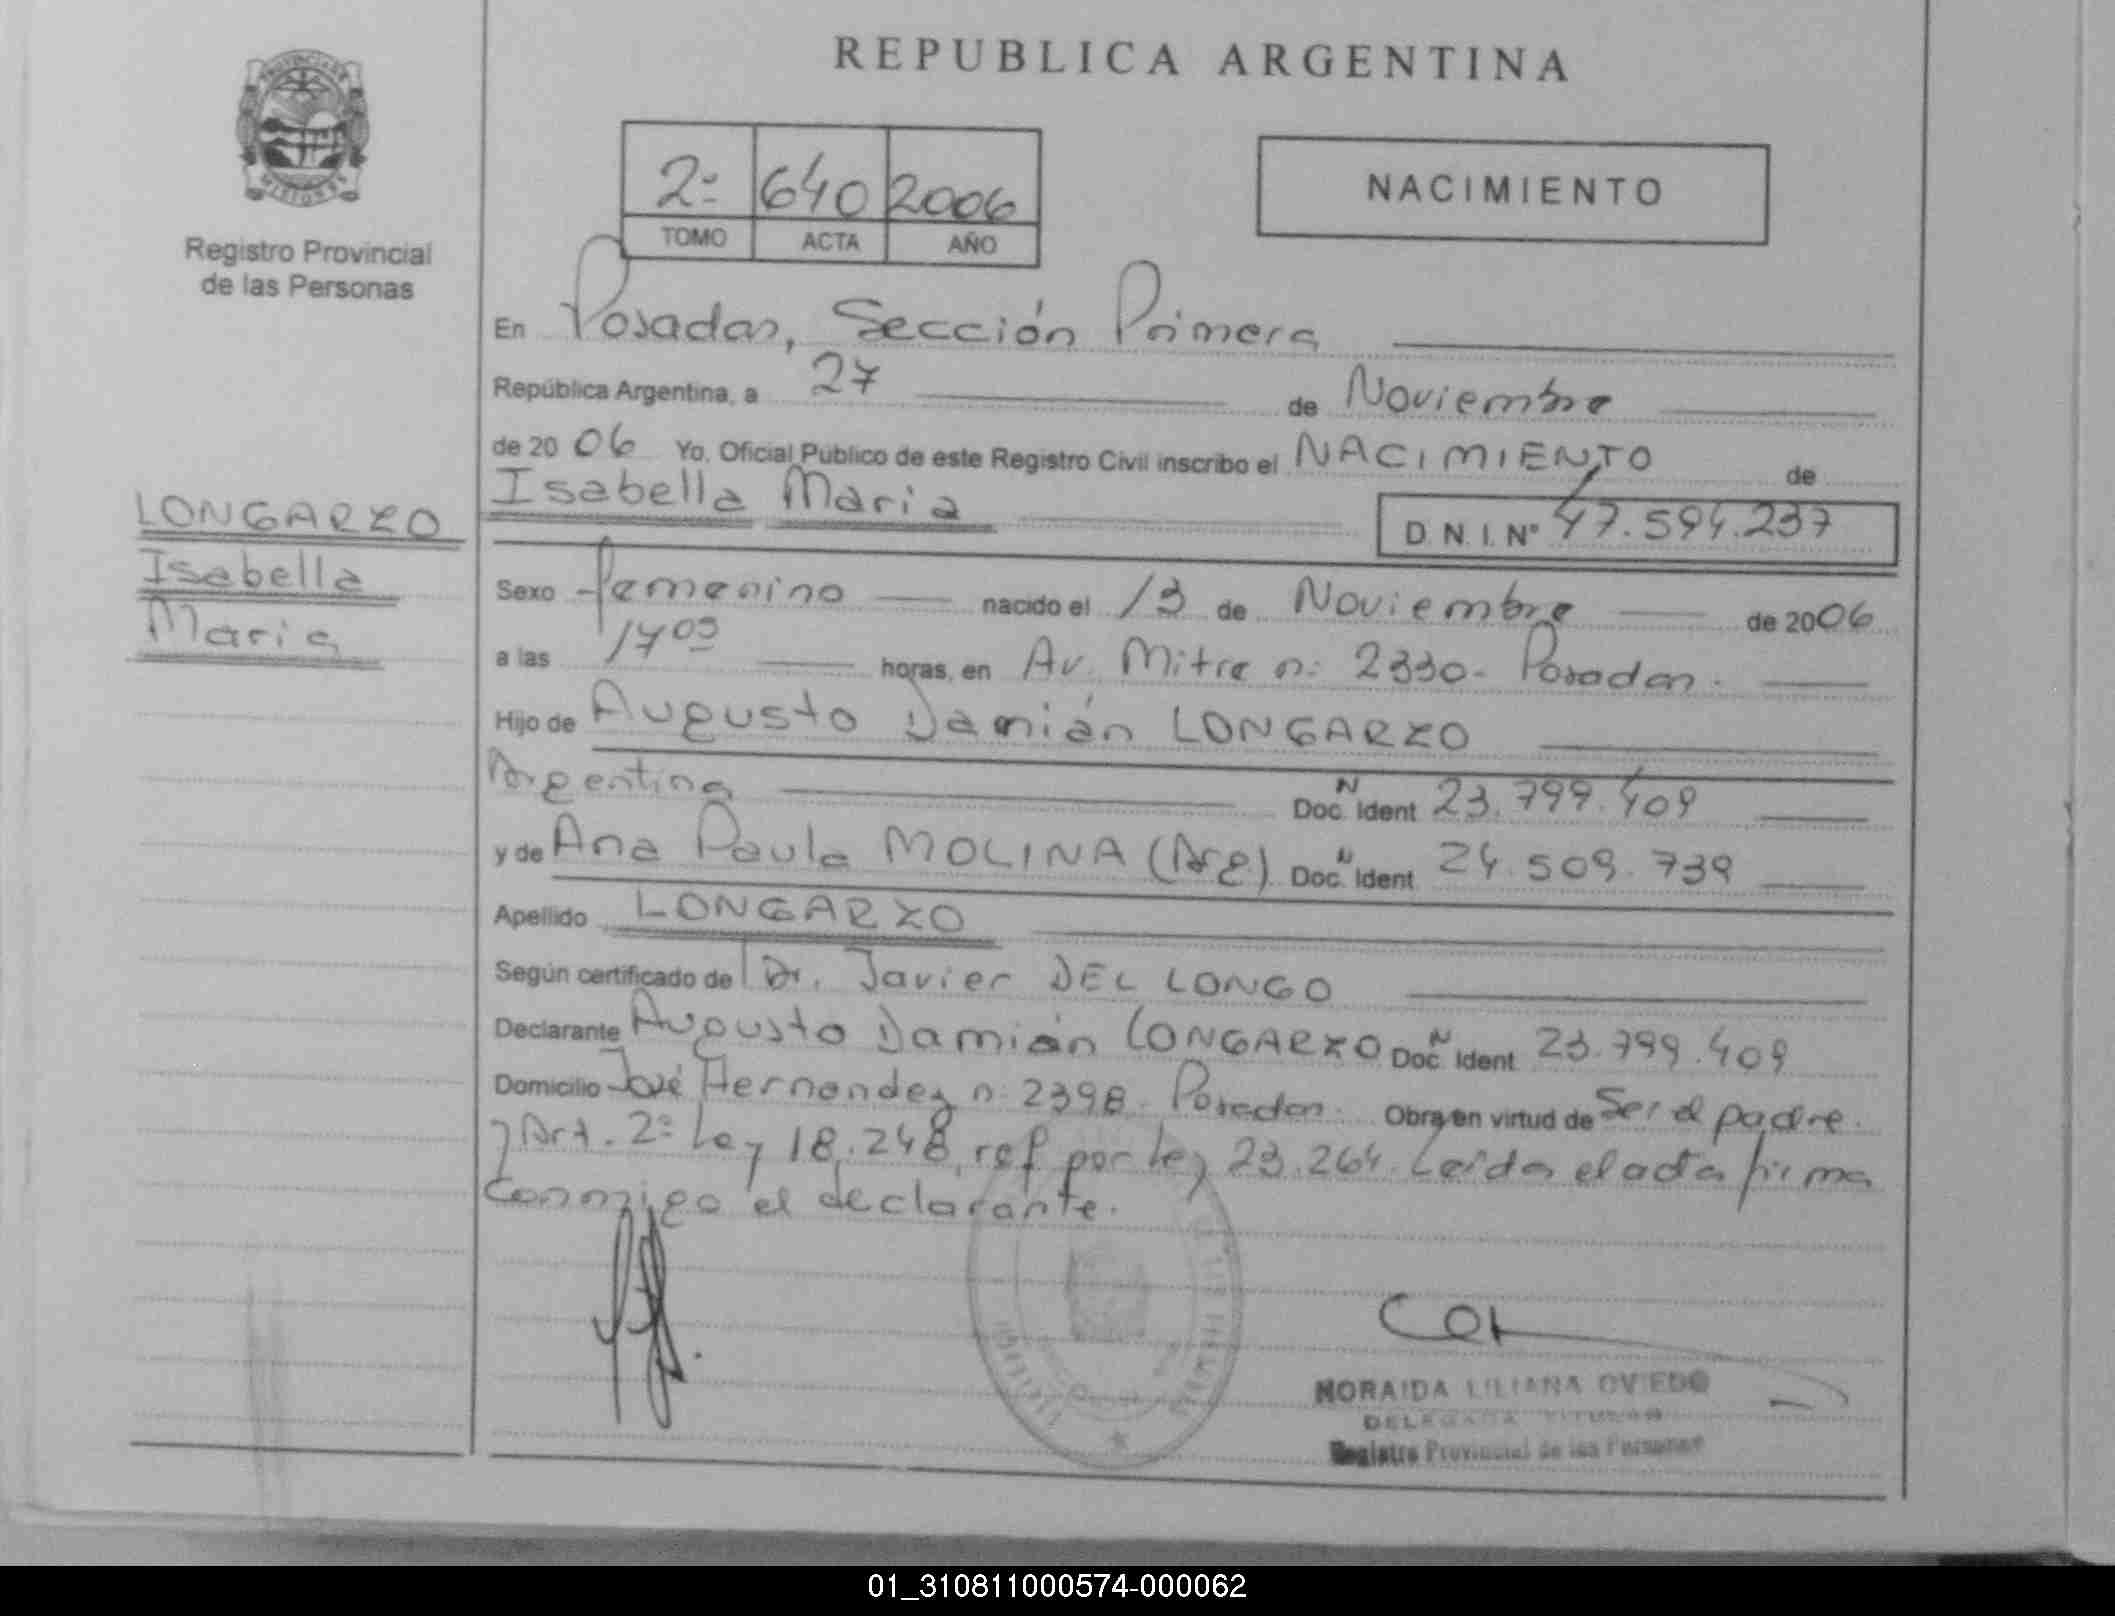 REPUBLICA ARGENTINA
PROVINCIA DE
MISIONES
Registro Provincial
de las Personas
2º 640 2006
TOMO ACTA AÑO
NACIMIENTO
En Posadas, Sección Primera
República Argentina, a 27 de Noviembre
de 2006 Yo, Oficial Público de este Registro Civil inscribo el NACIMIENTO de
Isabella Maria D.N.I. Nº 47.594.237
LONGARZO
Isabella
Maria
Sexo femenino nacido el 13 de Noviembre de 2006
a las 1405 horas, en Av. Mitre nº 2330- Posadas.
Hijo de Augusto Damián LONGARZO
Argentina Doc. N Ident 23.799.409
y de Ana Paula MOLINA (Arg) Doc. N Ident 24.509.739
Apellido LONGARZO
Según certificado de Dr. Javier DEL LONGO
Declarante Augusto Damián LONGARZO Doc. N Ident 23.799.409
Domicilio José Hernandez nº 2398. Posadas. Obra en virtud de Ser el padre.
y Art. 2º Ley 18.248, ref por ley 23.264. Leída el acta firma
conmigo el declarante.
NORAIDA LILIANA OVIEDO
DELEGADA TITULAR
Registro Provincial de las Personas
01_310811000574-000062